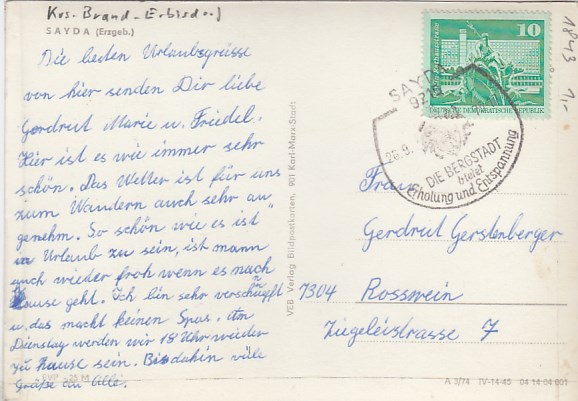 Krs. Brand-Erbisdorf
SAYDA (Erzgeb.)
Die besten Urlaubsgrüsse
von hier senden Dir liebe
Gerdrut Marie u. Friedel.
Hier ist es wie immer sehr
schön. Das Wetter ist für uns
zum Wandern auch sehr an
genehm. So schön wie es ist
in Urlaub zu sein, ist mann
auch wieder froh wenn es nach
Hause geht. Ich bin sehr verschnupft
u. das macht keinen Spas. Am
Dienstag werden wir 18 Uhr wieder
zu Hause sein. Bis dahin viele
Grüße an alle.
EVP -,25 M
VEB Verlag Bildpostkarten, 901 Karl-Marx-Stadt
10
DEUTSCHE DEMOKRATISCHE REPUBLIK
SAYDA
9219
26.9.
DIE BERGSTADT
bietet
Erholung und Entspannung
1843 1,-
Frau
Gerdrut Gerstenberger
7304 Rosswein
Ziegeleistrasse 7
A 3/74 IV-14-45 04 14 04 001